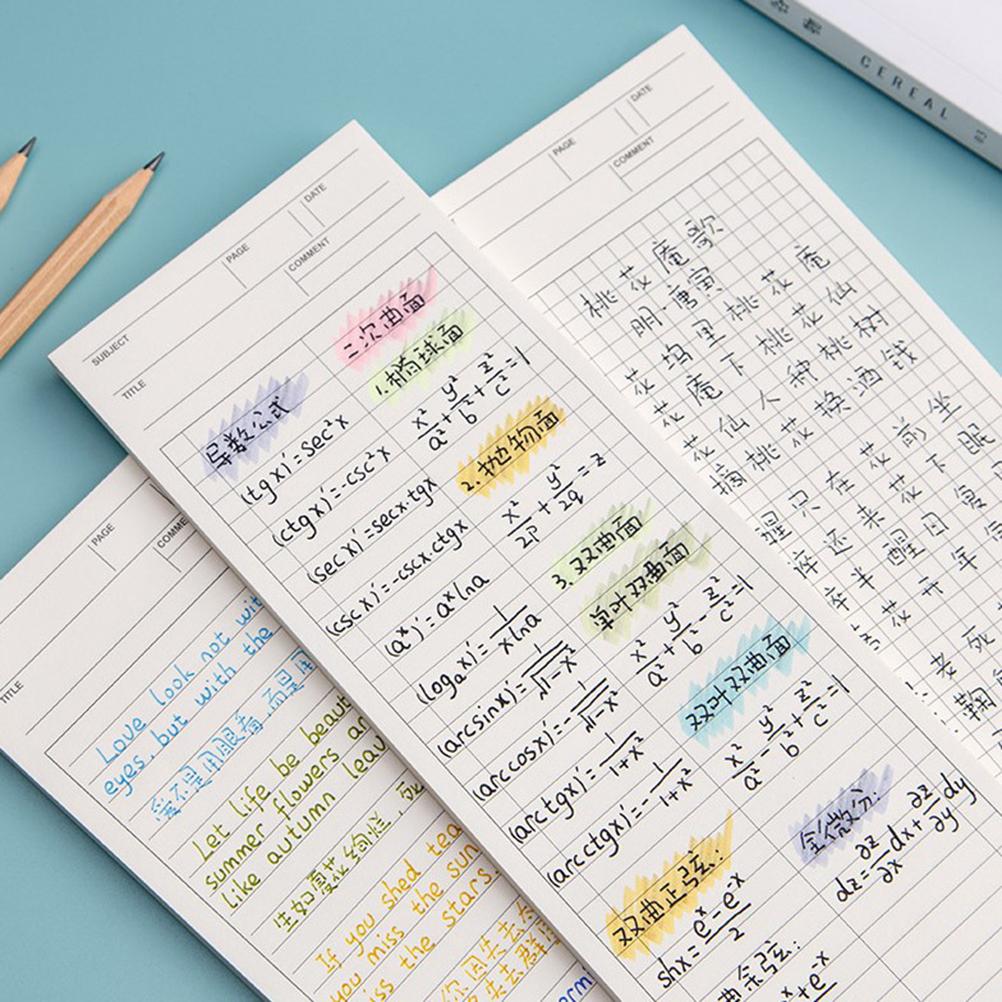 CEREAL
SUBJECT
PAGE
DATE
TITLE
COMMENT
导数公式
(tgx)'=sec²x
(ctgx)'=-csc²x
(secx)'=secx·tgx
(cscx)'=-cscx·ctgx
(aˣ)'=aˣlna
(logₐx)'=1/(xlna)
(arcsinx)'=1/√(1-x²)
(arccosx)'=-1/√(1-x²)
(arctgx)'=1/(1+x²)
(arcctgx)'=-1/(1+x²)
双曲正弦:
shx=(eˣ-e⁻ˣ)/2
曲余弦:
二次曲面
1.椭球面
x²/a²+y²/b²+z²/c²=1
2.抛物面
x²/2p+y²/2q=z
3.双曲面
单叶双曲面
x²/a²+y²/b²-z²/c²=1
双叶双曲面
x²/a²-y²/b²+z²/c²=-1
全微分:
dz=∂z/∂x dx+∂z/∂y dy
PAGE
DATE
COMMENT
桃花庵歌
明·唐寅
花坞里桃花庵
花庵下桃花仙
花仙人种桃树
摘桃花换酒钱
醒只在花前坐
醉还来花下眠
醉半醒日复
花开花年
老死
鞠
PAGE
TITLE
Love look not wit
eyes, but with the
爱不是用眼看,而是用
Let life be beaut
summer flowers an
like autumn leav
生如夏花绚烂,死
If you shed tea
you miss the sun
you miss the stars.
你因失去
失去群